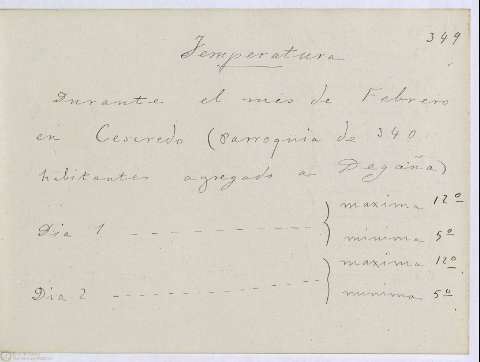 349
Temperatura
Durante el mes de Febrero
en Ceseredo (parroquia de 340
habitantes agregado a Degaña)
Dia 1 maxima 12º
minima 5º
Dia 2 maxima 12º
minima 5º